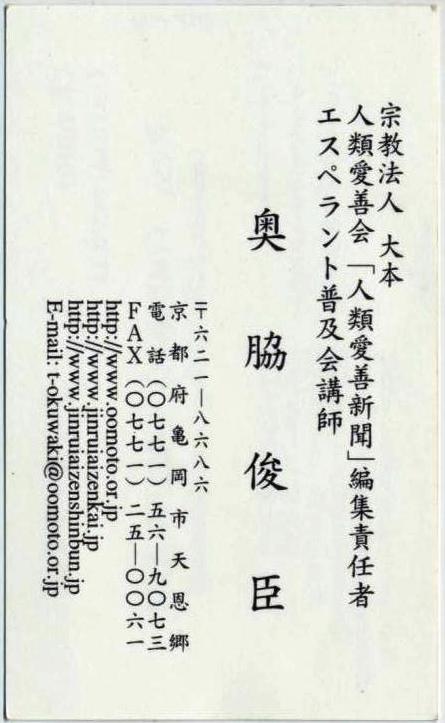 宗教法人 大本
人類愛善会「人類愛善新聞」編集責任者
エスペラント普及会講師
奥脇俊臣
〒六二一―八六八六
京都府亀岡市天恩郷
電話(〇七七一)五六―九〇七三
FAX(〇七七一)二五―〇〇六一
http://www.oomoto.or.jp
http://www.jinruiaizenkai.jp
http://www.jinruiaizenshinbun.jp
E-mail: t-okuwaki@oomoto.or.jp